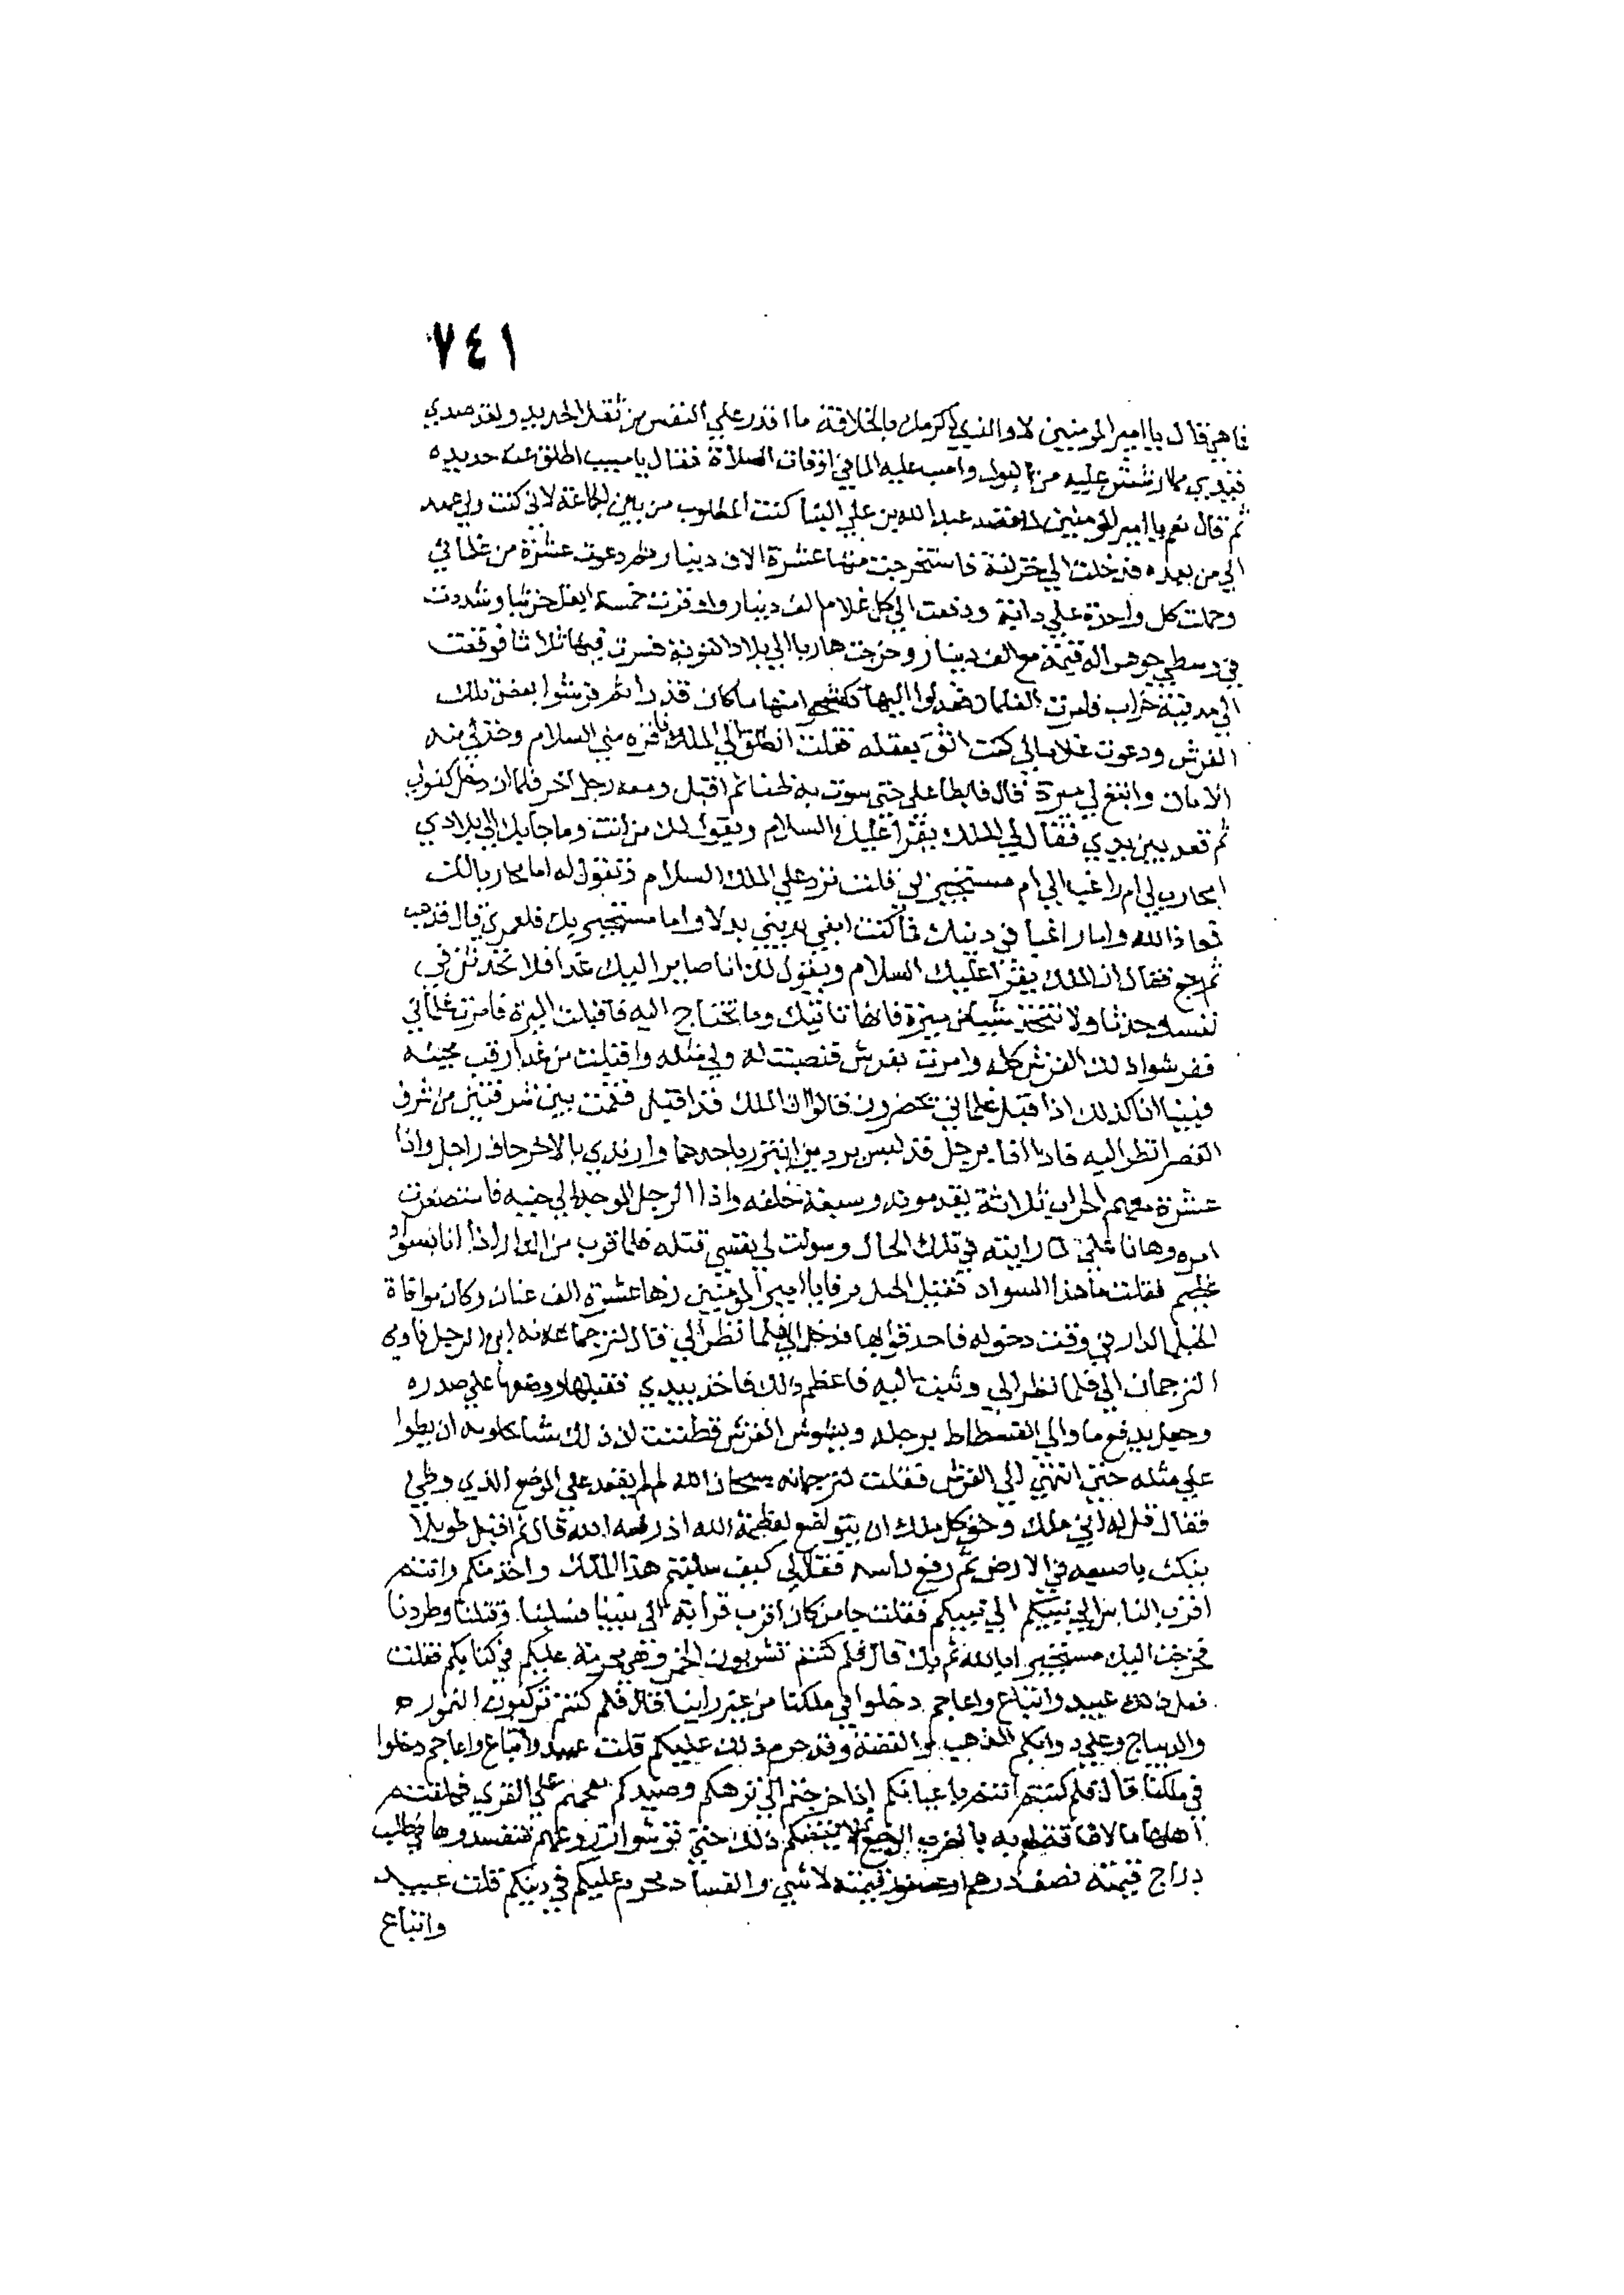 ٧٤١
فاهي قال يا امير المومنين لا والذي اكرمك بالخلافة ما اقدر علي النفس من ثقل الحديد ولقد صدي
قيدي مما رشش عليه من البول واصب عليه الما في اوقات الصلاة فقال يا مسيب اطلق عنه حديده
ثم قال نعم يا امير المومنين لما قصد عبد الله بن علي الينا كنت المطلوب من بين الجماعة لاني كنت ولي عهد
ابي من بعده فدخلت الي خزانة فاستخرجت منها عشرة الاف دينار ثم دعوت عشرة من غلماني
وحملت كل واحد علي دابة ودفعت الي كل غلام الف دينار واوقرت خمسة ابغل خرثيا وشددت
في وسطي جوهرا له قيمة مع الف دينار وخرجت هاربا الي بلاد النوبة فسرت فيها ثلاثا فوقعت
الي مدينة خراب فامرت الغلمان فعدلوا اليها فكسحوا منها ما كان قذرا ثم فرشوا بعض تلك
الفرش ودعوت غلاما لي كنت اثق بعقله فقلت انطلق الي الملك فاقره مني السلام وخذ لي منه
الامان وابتغ لي ميرة قال فابطا علي حتي سوت به ظنا ثم اقبل ومعه رجل اخر فلما ان دخل كفر لي
ثم قعد بين يدي فقال لي الملك يقرا عليك السلام ويقول لك من انت وما جا بك الي بلادي
امحارب لي ام راغب الي ام مستجير لي فقلت ترد علي الملك السلام وتقول له اما محارب لك
فمعاذ الله واما راغبا في دينك فما كنت ابغي بديني بدلا واما مستجير بك فلعمري قال فذهب
ثم رجع فقال ان الملك يقرا عليك السلام ويقول لك انا صاير اليك غدا فلا تحدثن في
نفسك حدثا ولا تتخذ شيا من ميرة فانها تاتيك وما تحتاج اليه فاقبلت الميرة فامرت غلماني
ففرشوا ذلك الفرش كله وامرت بفرش فنصبت له ولي مثله واقبلت من غد ارقب مجيئه
فبينا انا كذلك اذ اقبل غلماني يحضرون قالوا ان الملك قد اقبل فقمت بين شرفتين من شرف
القصر انظر اليه فاذا انا برجل قد لبس بردين اتزر باحدهما وارتدي بالاخر حاف راجل واذا
عشرة معهم الحراب ثلاثة يقدمونه وسبعة خلفه واذا الرجل الموجه الي جنبه فاستصغرت
امره وهان علي لما رايته في تلك الحال وسولت لي نفسي قتله فلما قرب من الدار اذا انا بسواد
عظيم فقلت ما هذا السواد فقيل الخيل فوافا يا امير المومنين زها عشرة الف عنان وكان موافاة
الخيل الدار في وقت دخوله فاحدقوا بها فدخل الي فلما نظر الي قال لترجمانه اين الرجل فاومي
الترجمان الي فلما نظر الي وثبت اليه فاعظم ذلك فاخذ بيدي فقبلها ووضعها علي صدره
وجعل يدفع ما والي الفسطاط برجله ويشوش الفرش فظننت ان ذلك شيا يجلونه ان يطوا
علي مثله حتي انتهي الي الفرش فقلت لترجمانه سبحان الله لم لم يقعد علي الموضع الذي وطي
فقال قل له اني ملك وحق كل ملك ان يتواضع لعظمة الله اذ رفعه الله قال ثم اقبل طويلا
ينكت باصبعه في الارض ثم رفع راسه فقال لي كيف سلبتم هذا الملك واخذ منكم وانتم
اقرب الناس الي نبيكم فقلت جا من كان اقرب قرابة الي نبينا فسلبنا وقتلنا وطردنا
فخرجت اليك مستجيرا بالله ثم بك قال فلم كنتم تشربون الخمر وهي محرمة عليكم في كتابكم فقلت
فعل ذلك عبيد واتباع واعاجم دخلوا في ملكنا من غير راينا قال فلم كنتم تركبون النمور
والديباج وعلي دوابكم الذهب والفضة وقد حرم ذلك عليكم قلت عبيد واتباع واعاجم دخلوا
في ملكنا قال فلم كنتم انتم باعيانكم اذا خرجتم الي نزهكم وصيدكم تعمدتم علي القري فكلفتم
اهلها ما لا طاقة لهم به بالضرب الوجيع ثم لا يقنعكم ذلك حتي تدوسوا زروعهم فتفسدوها في طلب
دراج قيمته نصف درهم او عصفور قيمته لا شي والفساد محرم عليكم في دينكم قلت عبيد
واتباع